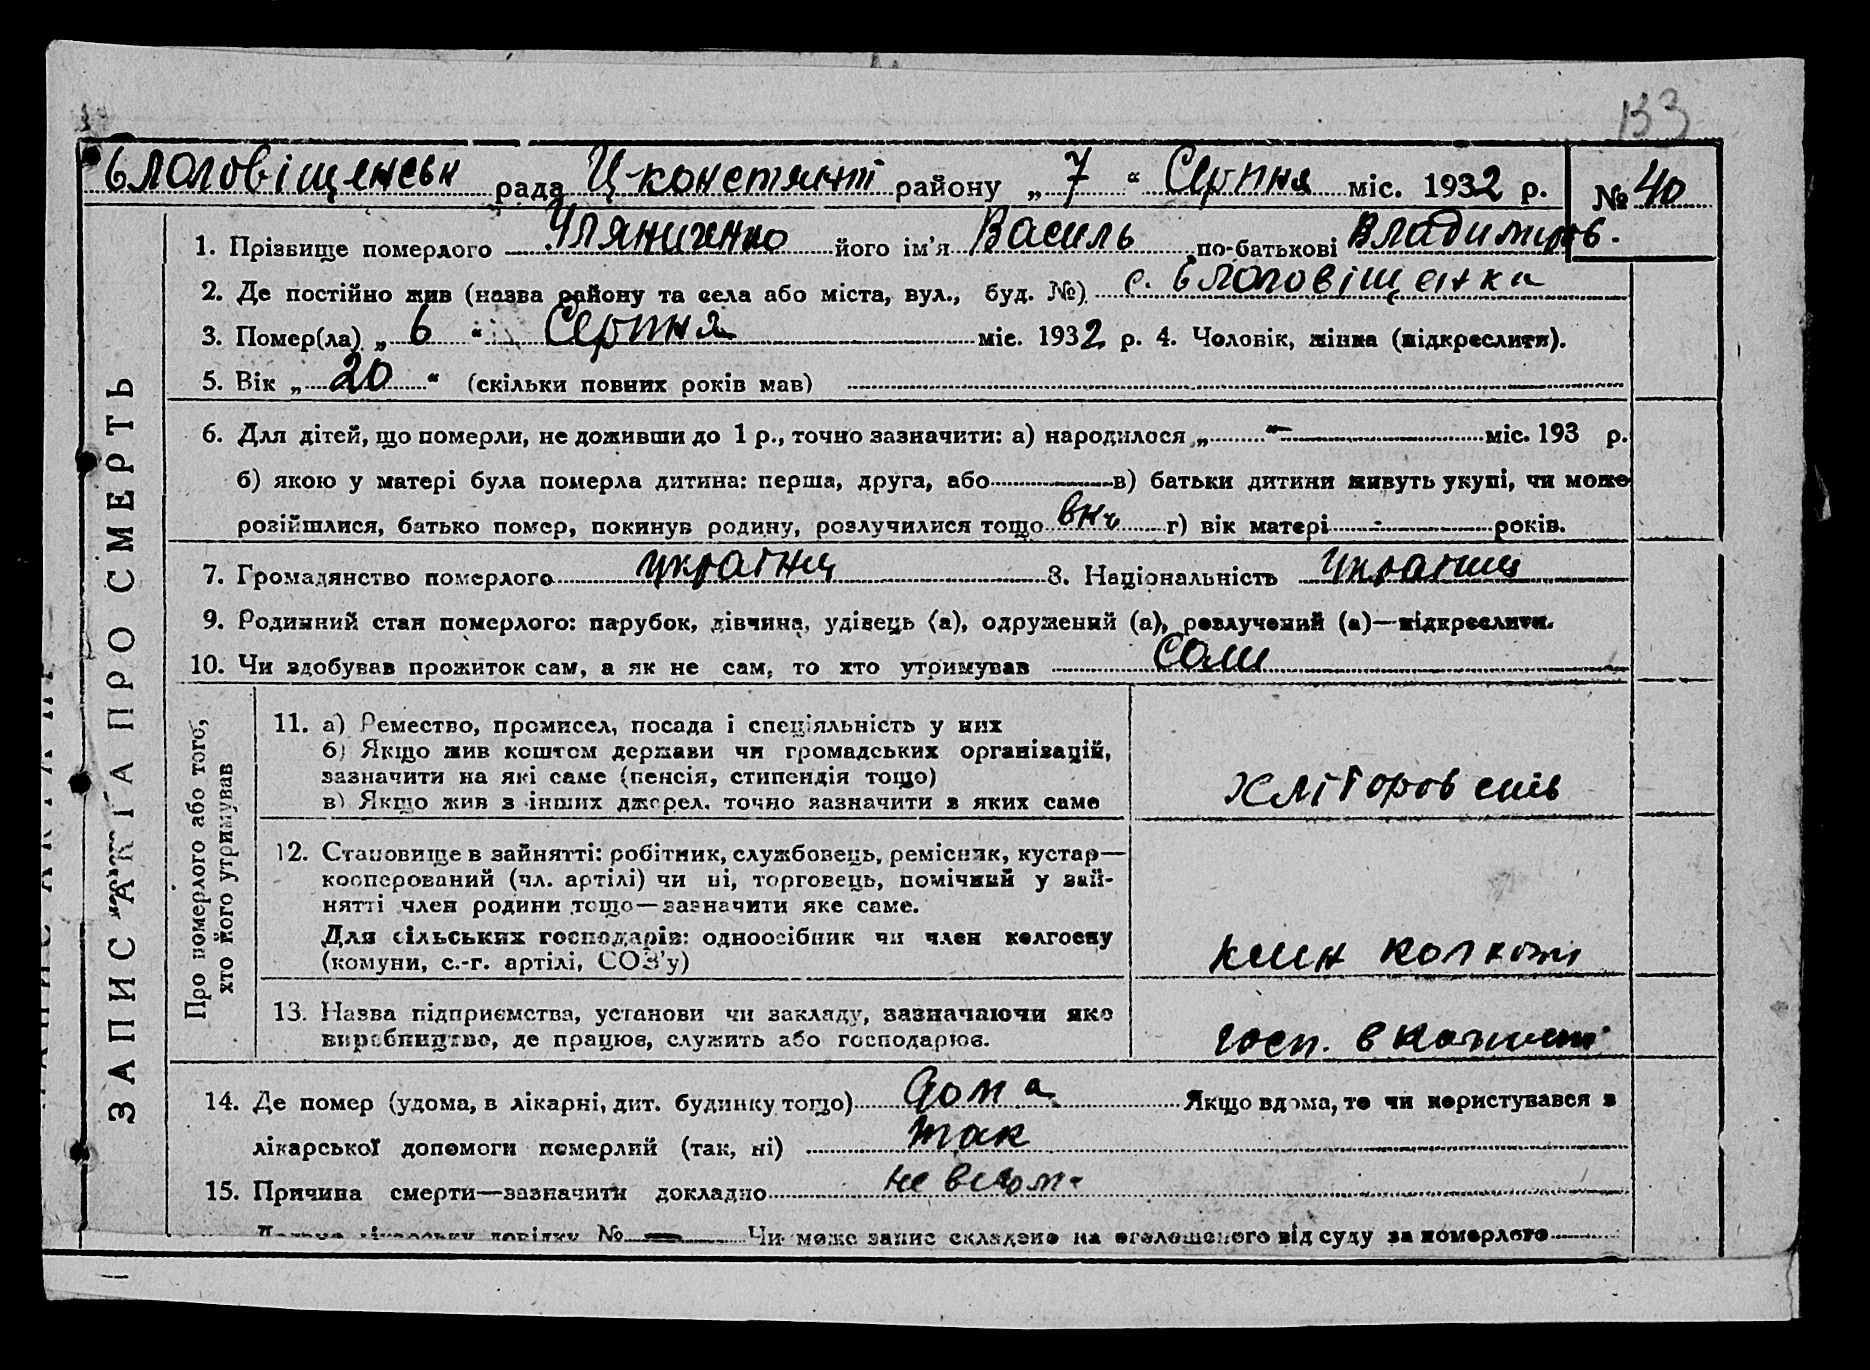 133
Благовіщенськ рада Ц-констянт району „ 7 “ Серпня міс. 1932 р. № 40
1. Прізвище померлого Уляниченко його ім'я Василь по-батькові Владимиров.
2. Де постійно жив (назва району та села або міста, вул., буд. №) с. Благовіщенка
3. Помер(ла) „ 6 “ Серпня міс. 1932 р. 4. Чоловік, жінка (підкреслити).
5. Вік „ 20 “ (скільки повних років мав)
6. Для дітей, що померли, не доживши до 1 р., точно зазначити: а) народилося „ “ міс. 193 р.
б) якою у матері була померла дитина: перша, друга, або в) батьки дитини живуть укупі, чи може
розійшлися, батько помер, покинув родину, розлучилися тощо г) вік матері - років.
7. Громадянство померлого українц 8. Національність українц
9. Родинний стан померлого: парубок, дівчина, удівець (а), одружений (а), розлучений (а)—підкреслити.
10. Чи здобував прожиток сам, а як не сам, то хто утримував сам
ЗАПИС АКТА ПРО СМЕРТЬ
Про померлого або того,
хто його утримував
11. а) Ремество, промисел, посада і спеціяльність у них
б) Якщо жив коштом держави чи громадських організацій,
зазначити на які саме (пенсія, стипендія тощо)
в) Якщо жив з інших джерел, точно зазначити з яких саме
12. Становище в зайнятті: робітник, службовець, ремісник, кустар—
кооперований (чл. артілі) чи ні, торговець, помічний у зай-
нятті член родини тощо—зазначити яке саме.
Для сільських господарів: одноосібник чи член колгоспу
(комуни, с.-г. артілі, СОЗ'у)
13. Назва підприємства, установи чи закладу, зазначаючи яке
виробництво, де працює, служить або господарює.
госп. в
14. Де помер (удома, в лікарні, дит. будинку тощо) дома Якщо вдома, то чи користувався з
лікарської допомоги померлий (так, ні) так
15. Причина смерти—зазначити докладно не відом.
лікарську довідку № — Чи може запис складено на оголошеного від суду за померлого